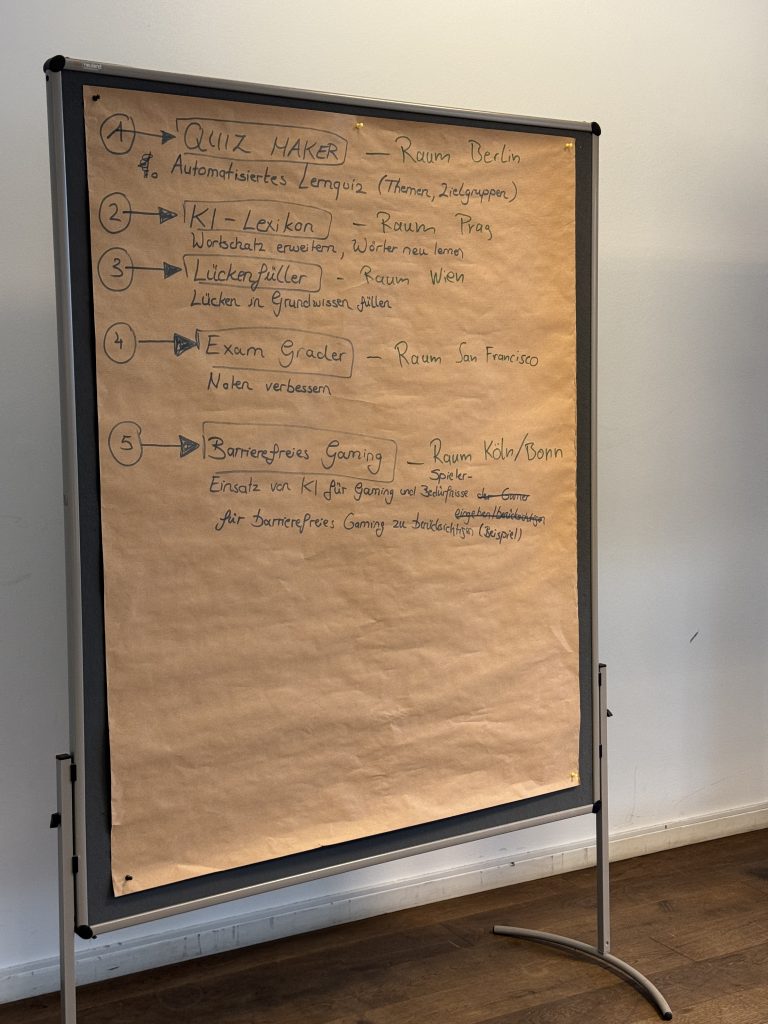 neuland
1 → QUIZ MAKER — Raum Berlin
Automatisiertes Lernquiz (Themen, Zielgruppen)
2 → KI-Lexikon — Raum Prag
Wortschatz erweitern, Wörter neu lernen
3 → Lückenfüller - Raum Wien
Lücken in Grundwissen füllen
4 → Exam Grader — Raum San Francisco
Noten verbessern
5 → Barrierefreies Gaming — Raum Köln/Bonn
Spieler-
Einsatz von KI für Gaming und Bedürfnisse der Gamer
eingeben/berücksichtigen
für barrierefreies Gaming zu berücksichtigen (Beispiel)